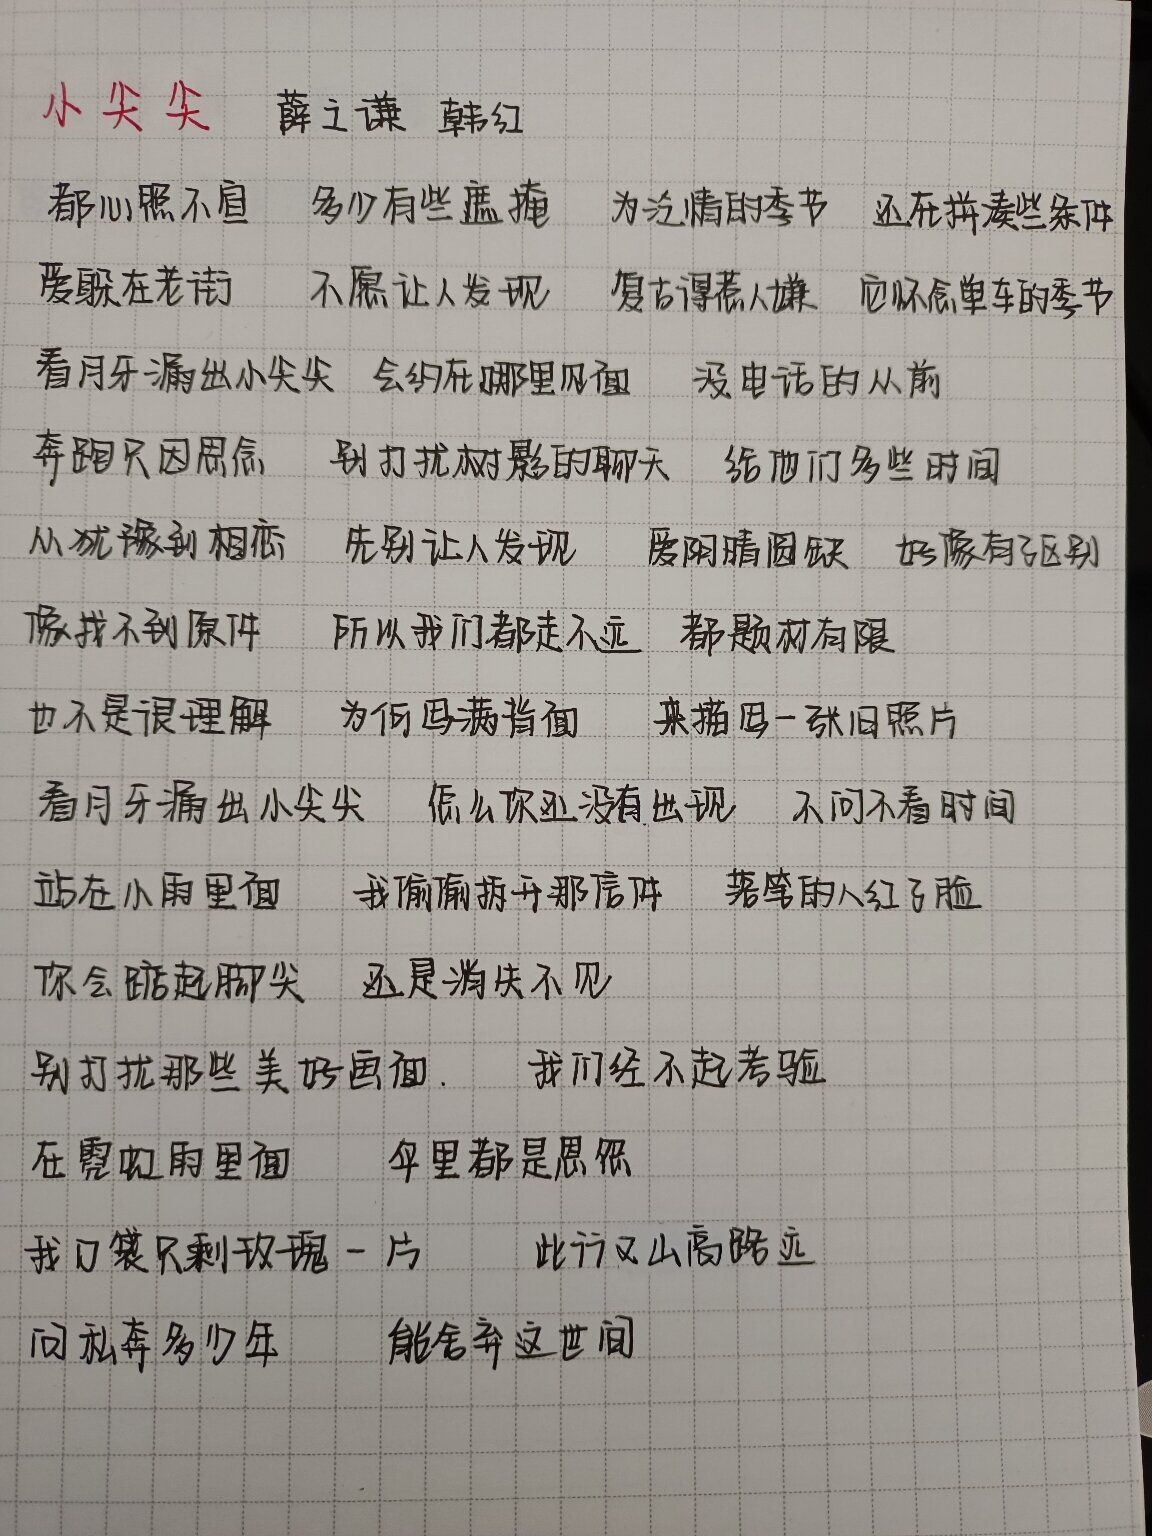 小尖尖 薛之谦 韩红
都心照不宣 多少有些遮掩 为泛情的季节 还在拼凑些条件
爱躲在老街 不愿让人发现 复古得惹人嫌 它怀念单车的季节
看月牙漏出小尖尖 会约在哪里见面 没电话的从前
奔跑只因思念 别打扰树影的聊天 给他们多些时间
从犹豫到相恋 先别让人发现 爱阴晴圆缺 好像有了区别
像找不到原件 所以我们都走不远 都题材有限
也不是很理解 为何写满背面 来描写一张旧照片
看月牙漏出小尖尖 怎么你还没有出现 不问不看时间
站在小雨里面 我偷偷拆开那信件 落笔的人红了脸
你会踮起脚尖 还是消失不见
别打扰那些美好画面. 我们经不起考验
在霓虹雨里面 伞里都是思怨
我口袋只剩玫瑰一片 此行又山高路远
问私奔多少年 能舍弃这世间